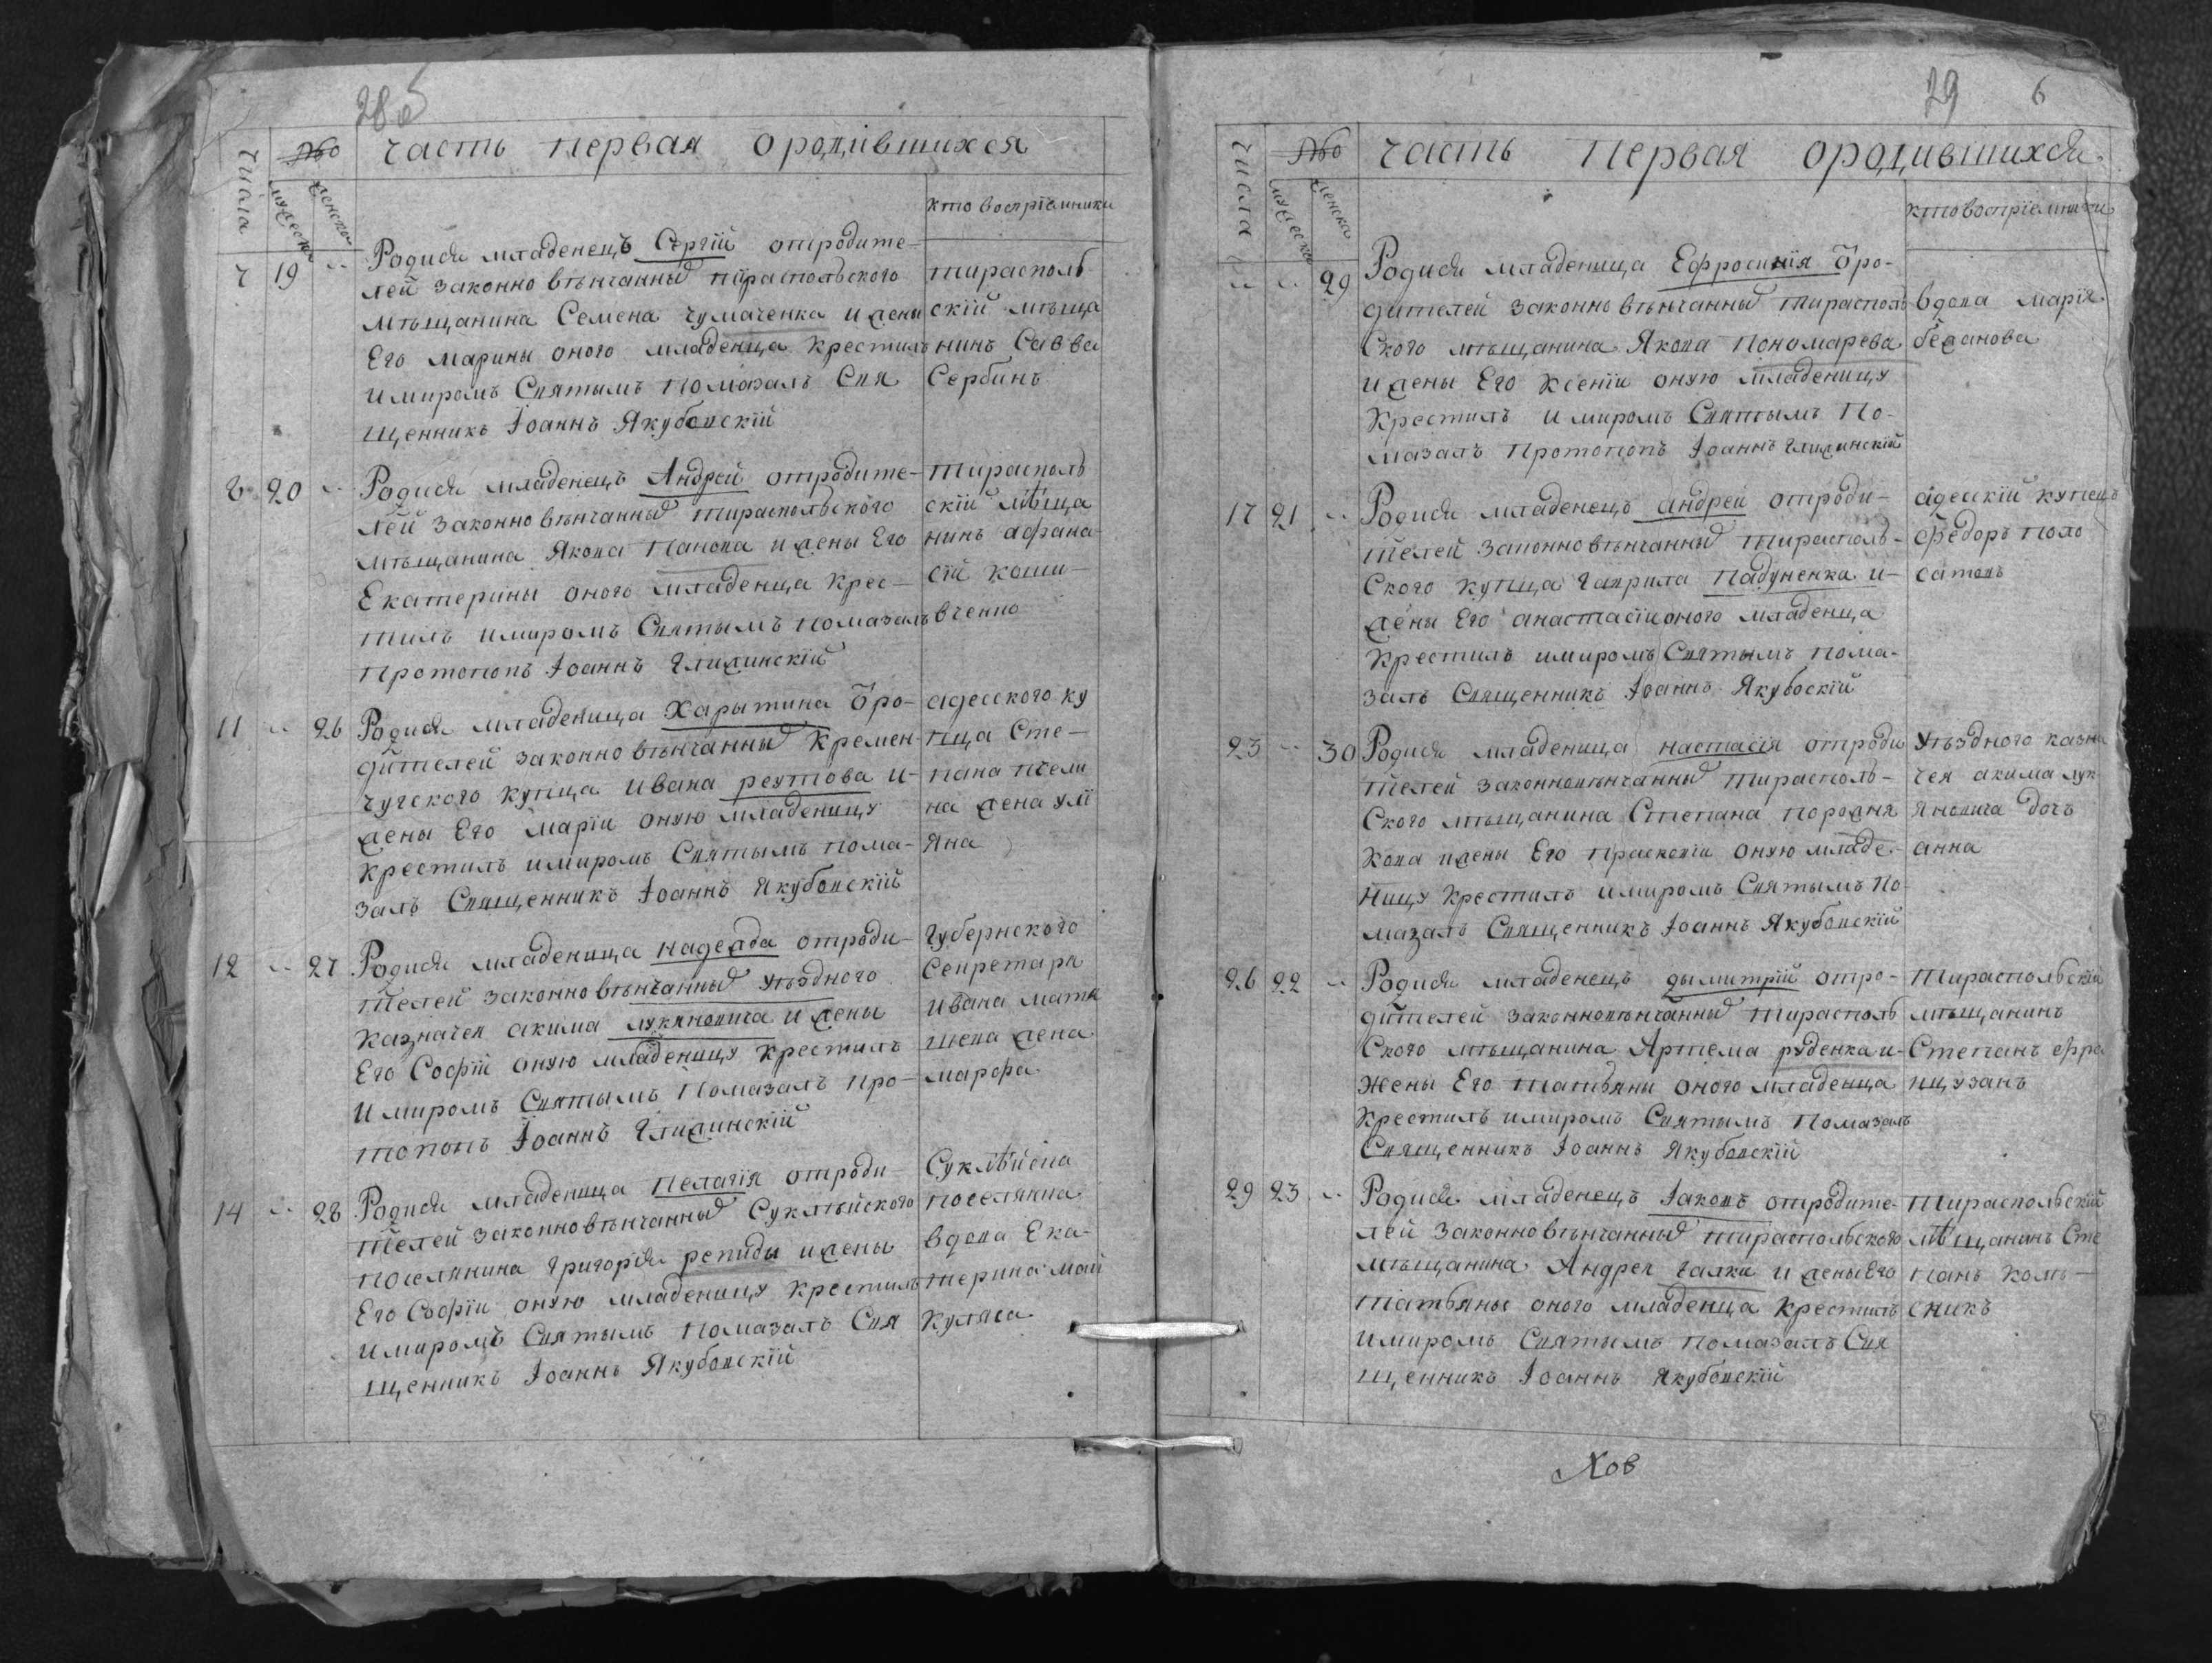 28об
Числа
№о
часть первая ородившихся
мужеска
женска
кто восприемники
7 19 Родися младенецъ Сергій отродите-
лей законно венчанныхъ тираспольского
мѣщанина Семена чумаченка и жены
Его марины оного младенца крестилъ
и миромъ Святымъ помазалъ Свя
щенникъ Іоаннъ Якубовскій
тирасполь
скій мѣща
нинъ Савва
Сербинъ
8 20 Родися младенецъ Андрей отродите-
лей законно вѣнчанныхъ тираспольского
мѣщанина Якова Панова и жены Его
Екатерины оного младенца крес-
тилъ и миромъ Святымъ помазалъ
протопопъ Іоаннъ Глижинскій
тирасполь
скій мѣща
нинъ афана-
сій коши-
вченко
11 26 Родися младеница Харытина отро-
дителей законно вѣнчанныхъ кремен-
чугского купца ивана реутова и-
жены Его маріи оную младеницу
крестилъ и миромъ Святымъ пома-
залъ Священникъ Іоаннъ Якубовскій
адесского ку
пца Сте-
пана псели
на жена улі
яна
12 27 Родися младеница надежда отроди-
телей законно вѣнчанныхъ уѣздного
казначея акима лукяновича и жены
Его Софіи оную младеницу крестилъ
и миромъ Святымъ помазалъ про-
топопъ Іоаннъ Глижинскій
Губернского
Секретаря
ивана матя
шева жена
марфа
14 28 Родися младеница пелагія отроди-
телей законно вѣнчанныхъ Суклѣйского
поселянина григорія репиды и жены
Его Софіи оную младеницу крестилъ
и миромъ Святымъ помазалъ Свя
щенникъ Іоаннъ Якубовскій
Суклѣйска
поселянка
вдова Ека-
терина май
куляса
29 6
Числа
№о
часть первая ородившихся
мужеска
женска
кто восприемники
29 Родися младеница Ефросинія отро-
дителей законно вѣнчанныхъ тирасполь
Ского мѣщанина Якова пономарева
и жены Его Ксеніи оную младеницу
крестилъ и миромъ Святымъ по-
мазалъ протопопъ Іоаннъ Глижинскій
вдова марія
бежанова
17 21 Родися младенецъ андрей отроди-
телей законно вѣнчанныхъ тирасполь-
Ского купца гаврила падуненка и-
жены Его анастасіи оного младенца
крестилъ и миромъ Святымъ пома-
залъ Священникъ Іоаннъ Якубоскій
адесскій купецъ
федоръ поло
сатовъ
23 30 Родися младеница настасія отроди
телей законновѣнчанныхъ тирасполь-
Ского мѣщанина Степана порожня
кова и жены Его прасковіи оную младе-
ницу крестилъ и миромъ Святымъ по-
мазалъ Священникъ Іоаннъ Якубовскій
уѣздного казна
чея акима лук
яновича дочь
анна
26 22 Родися младенецъ дымитрій отро-
дителей законновѣнчанныхъ тирасполь
Ского мѣщанина Артема руденка и-
жены Его татьяны оного младенца
крестилъ и миромъ Святымъ помазалъ
Священникъ Іоаннъ Якубовскій
тираспольскій
мѣщанинъ
Степанъ фра
нцузанъ
29 23 Родися младенецъ Іаковъ отродите-
лей законно вѣнчанныхъ тираспольского
мѣщанина Андрея галки и жены Его
татьяны оного младенца крестилъ
и миромъ Святымъ помазалъ Свя
щенникъ Іоаннъ Якубовскій
тираспольскій
мѣщанинъ Сте
панъ коль-
сникъ